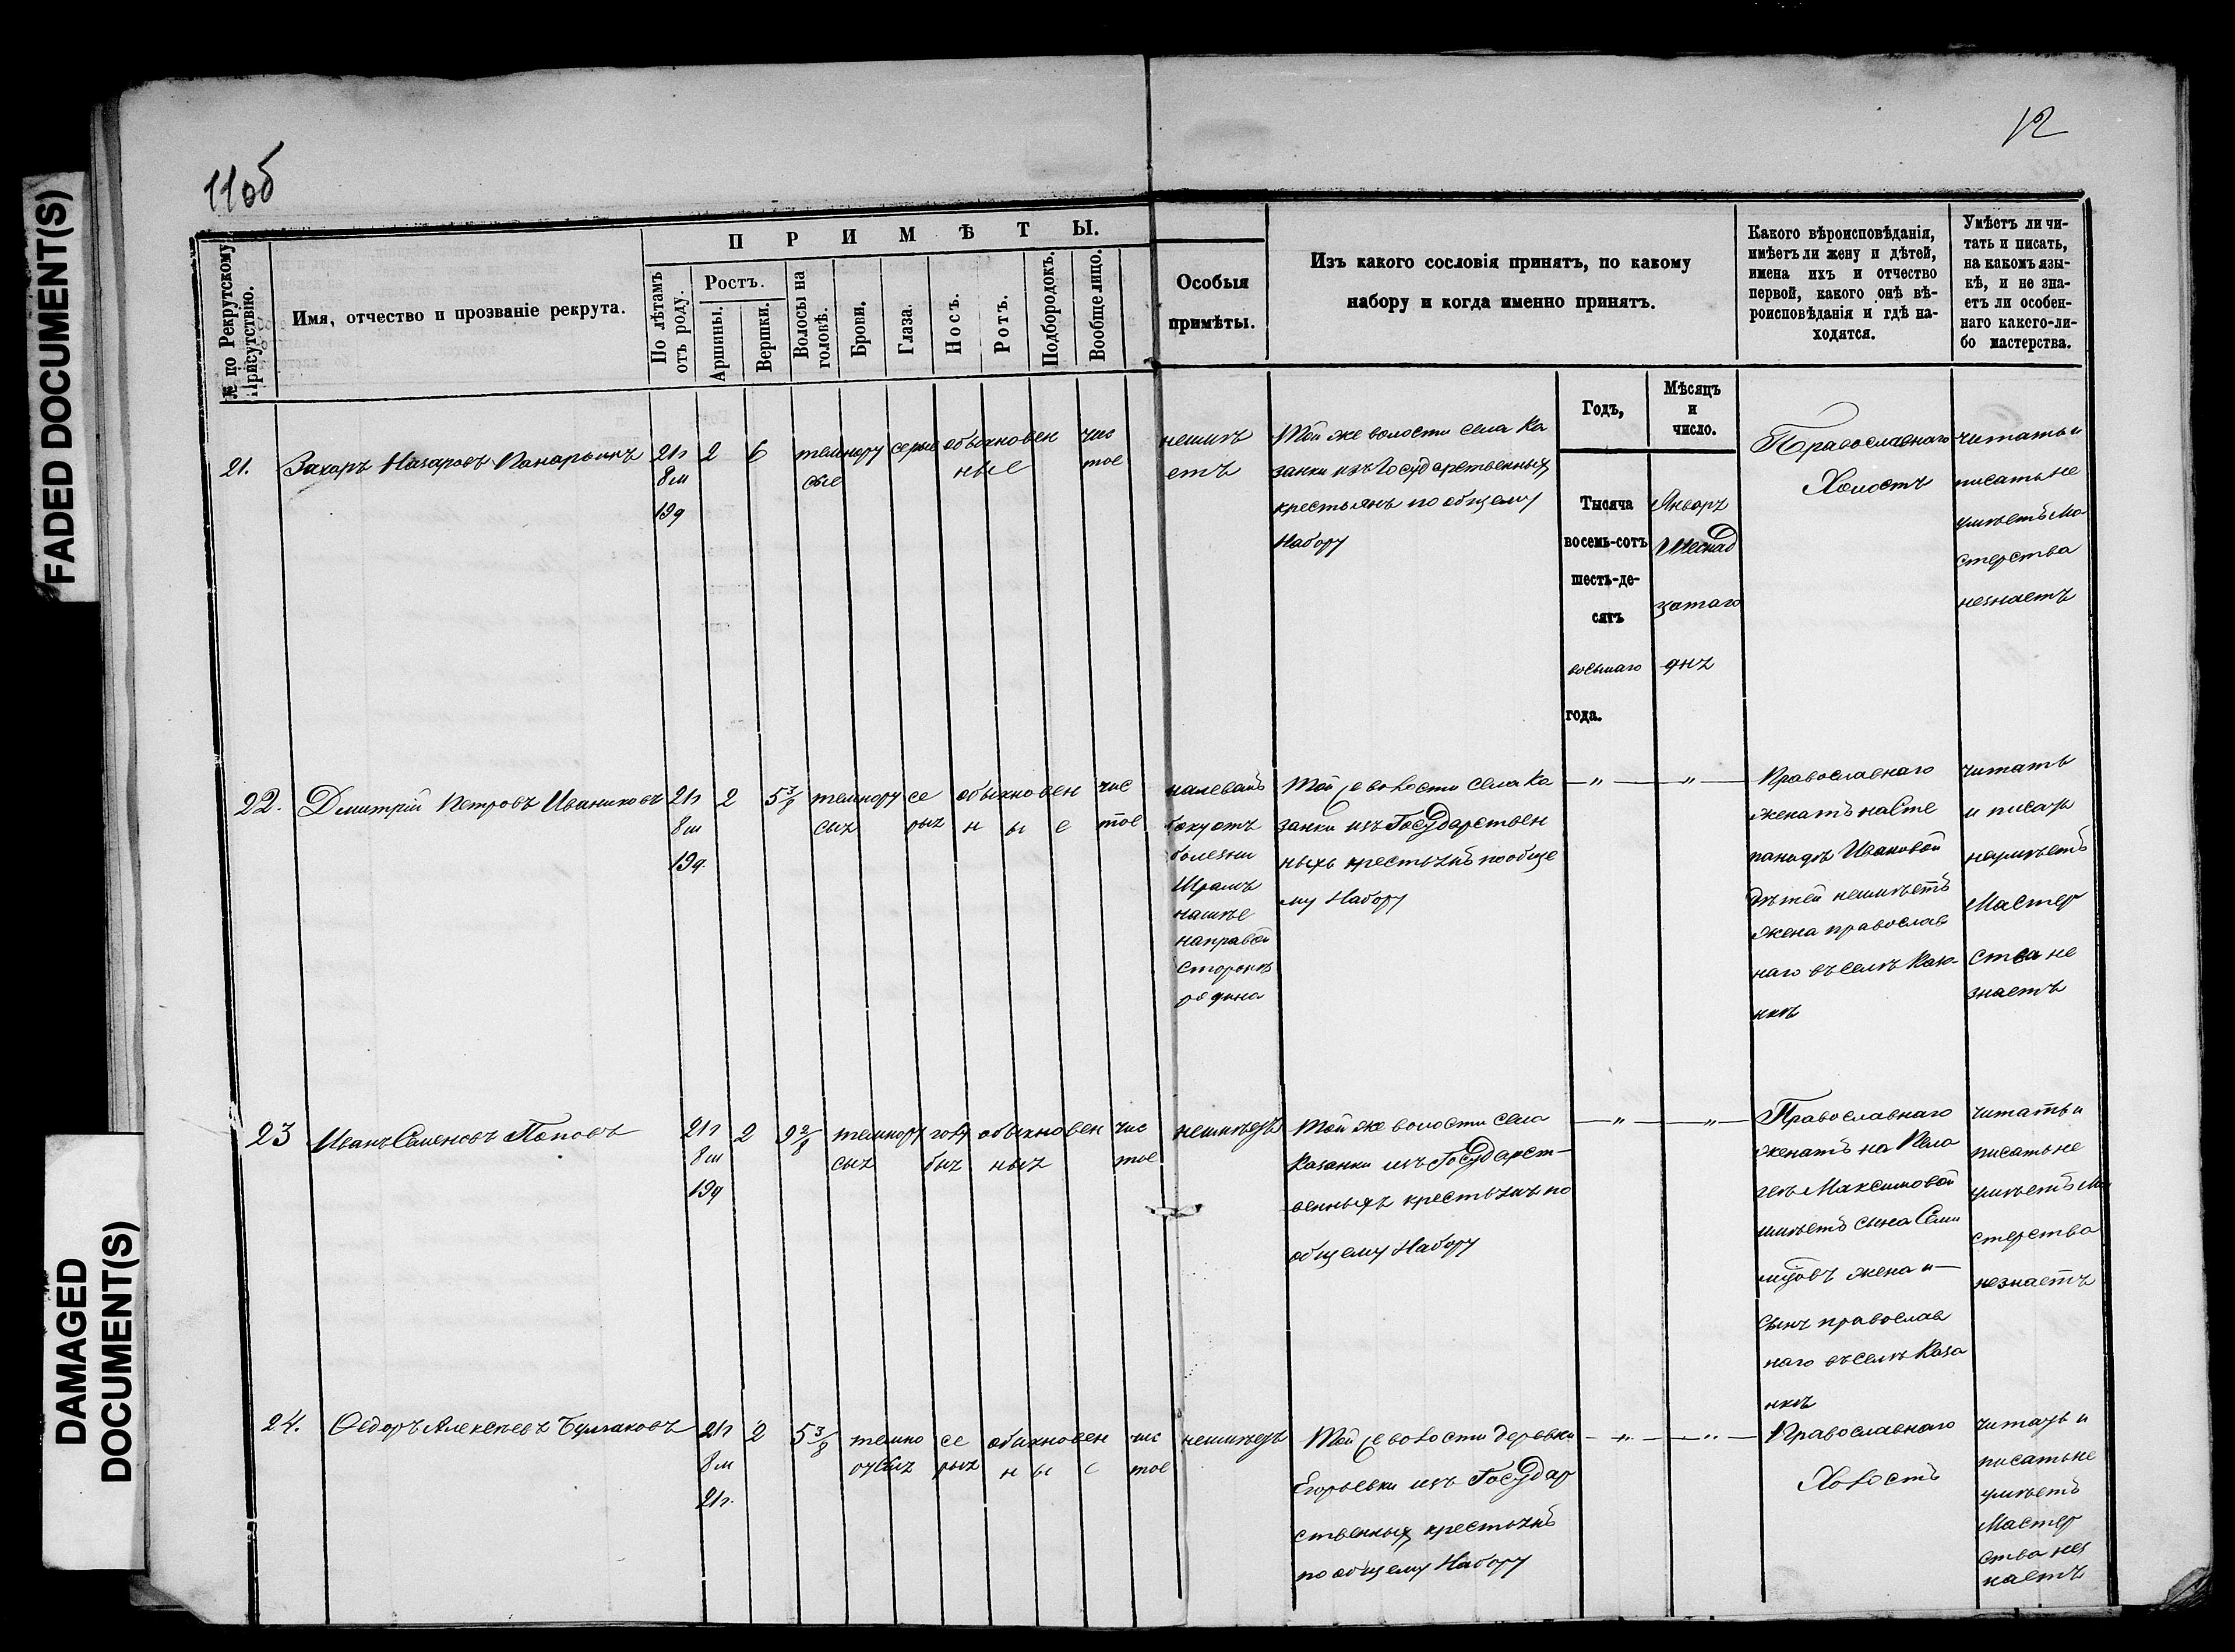 FADED DOCUMENT(S)
DAMAGED
DOCUMENT(S)
11об
12
№ по Рекрутскому
Присутствію.
Имя, отчество и прозваніе рекрута.
ПРИМѢТЫ.
По лѣтамъ
отъ роду.
Ростъ.
Аршины.
Вершки.
Волосы на
головѣ.
Брови.
Глаза.
Носъ.
Ротъ.
Подбородокъ.
Вообще лицо.
Особыя
примѣты.
Изъ какого сословія принятъ, по какому
набору и когда именно принятъ.
Годъ,
Мѣсяцъ
и
число.
Какого вѣроисповѣданія,
имѣетъ ли жену и дѣтей,
имена ихъ и отчество
первой, какого онѣ вѣ-
роисповѣданія и гдѣ на-
ходятся.
Умѣетъ ли чи-
тать и писать,
на какомъ язы-
кѣ, и не зна-
етъ ли особен-
наго какого-ли-
бо мастерства.
21.
Захаръ Назаровъ Панарьинъ
21г
8м
19д
2
6
темнору
сые
серые
обыкновен
ные
чис
тое
неимѣ
етъ
Той же волости села Ка
занки изъ Государственных
крестьянъ по общему
Набору
Тысяча
восемь-сотъ
шесть-де-
сятъ
восьмаго
года.
Январ
Шеснад
цатаго
дня
Православнаго
Холостъ
читать и
писать не
умѣетъ Ма
стерства
незнаетъ
22.
Дмитрій Петровъ Иванниковъ
21г
8м
19д.
2
5 3/8
темнору
сых
се
рых
обыкновен
ные
чис
тое
налевомъ
боку отъ
болезни
Шрамъ
нашѣе
направой
Сторонѣ
родина
Той же волости села Ка
занки изъ Государствен
ныхъ крестьянъ пообще
му Набору
— „ — „ —
Православнаго
женатъ наСте
панидѣ Ивановой
дѣтей неимѣетъ
жена православ
наго въ селѣ Каза-
нкѣ
читать
и писать
неумѣетъ
Мастер
Ства не
знаетъ
23
Иванъ Семеновъ Поповъ
21г
8м
19д
2
9 2/8
темнору
сых
голу
бых
обыкновен
ных
чис
тое
неимѣетъ
Той же волости села
Казанки изъ Государст-
венныхъ крестьянъ по
общему Набору
— „ — „ —
Православнаго
женатъ на Пела
геѣ Максимовой
имѣетъ сына
жена и
Сынъ православ
наго въ селѣ Каза
нкѣ
читать и
писать не
умѣетъ Ма
стерства
незнаетъ
24.
Ѳедоръ Алексѣевъ Булгаковъ
21г
8м
21д.
2
5 3/8
темно
русых
се
рых
обыкновен
ные
чис
тое
неимѣетъ
Той же волости деревни
Егорьевки изъ Государ
ственных крестьянъ
по общему Набору
— „ — „ —
Православнаго
Холостъ
читать и
писать не
умѣетъ
Мастер
ства нез
наетъ